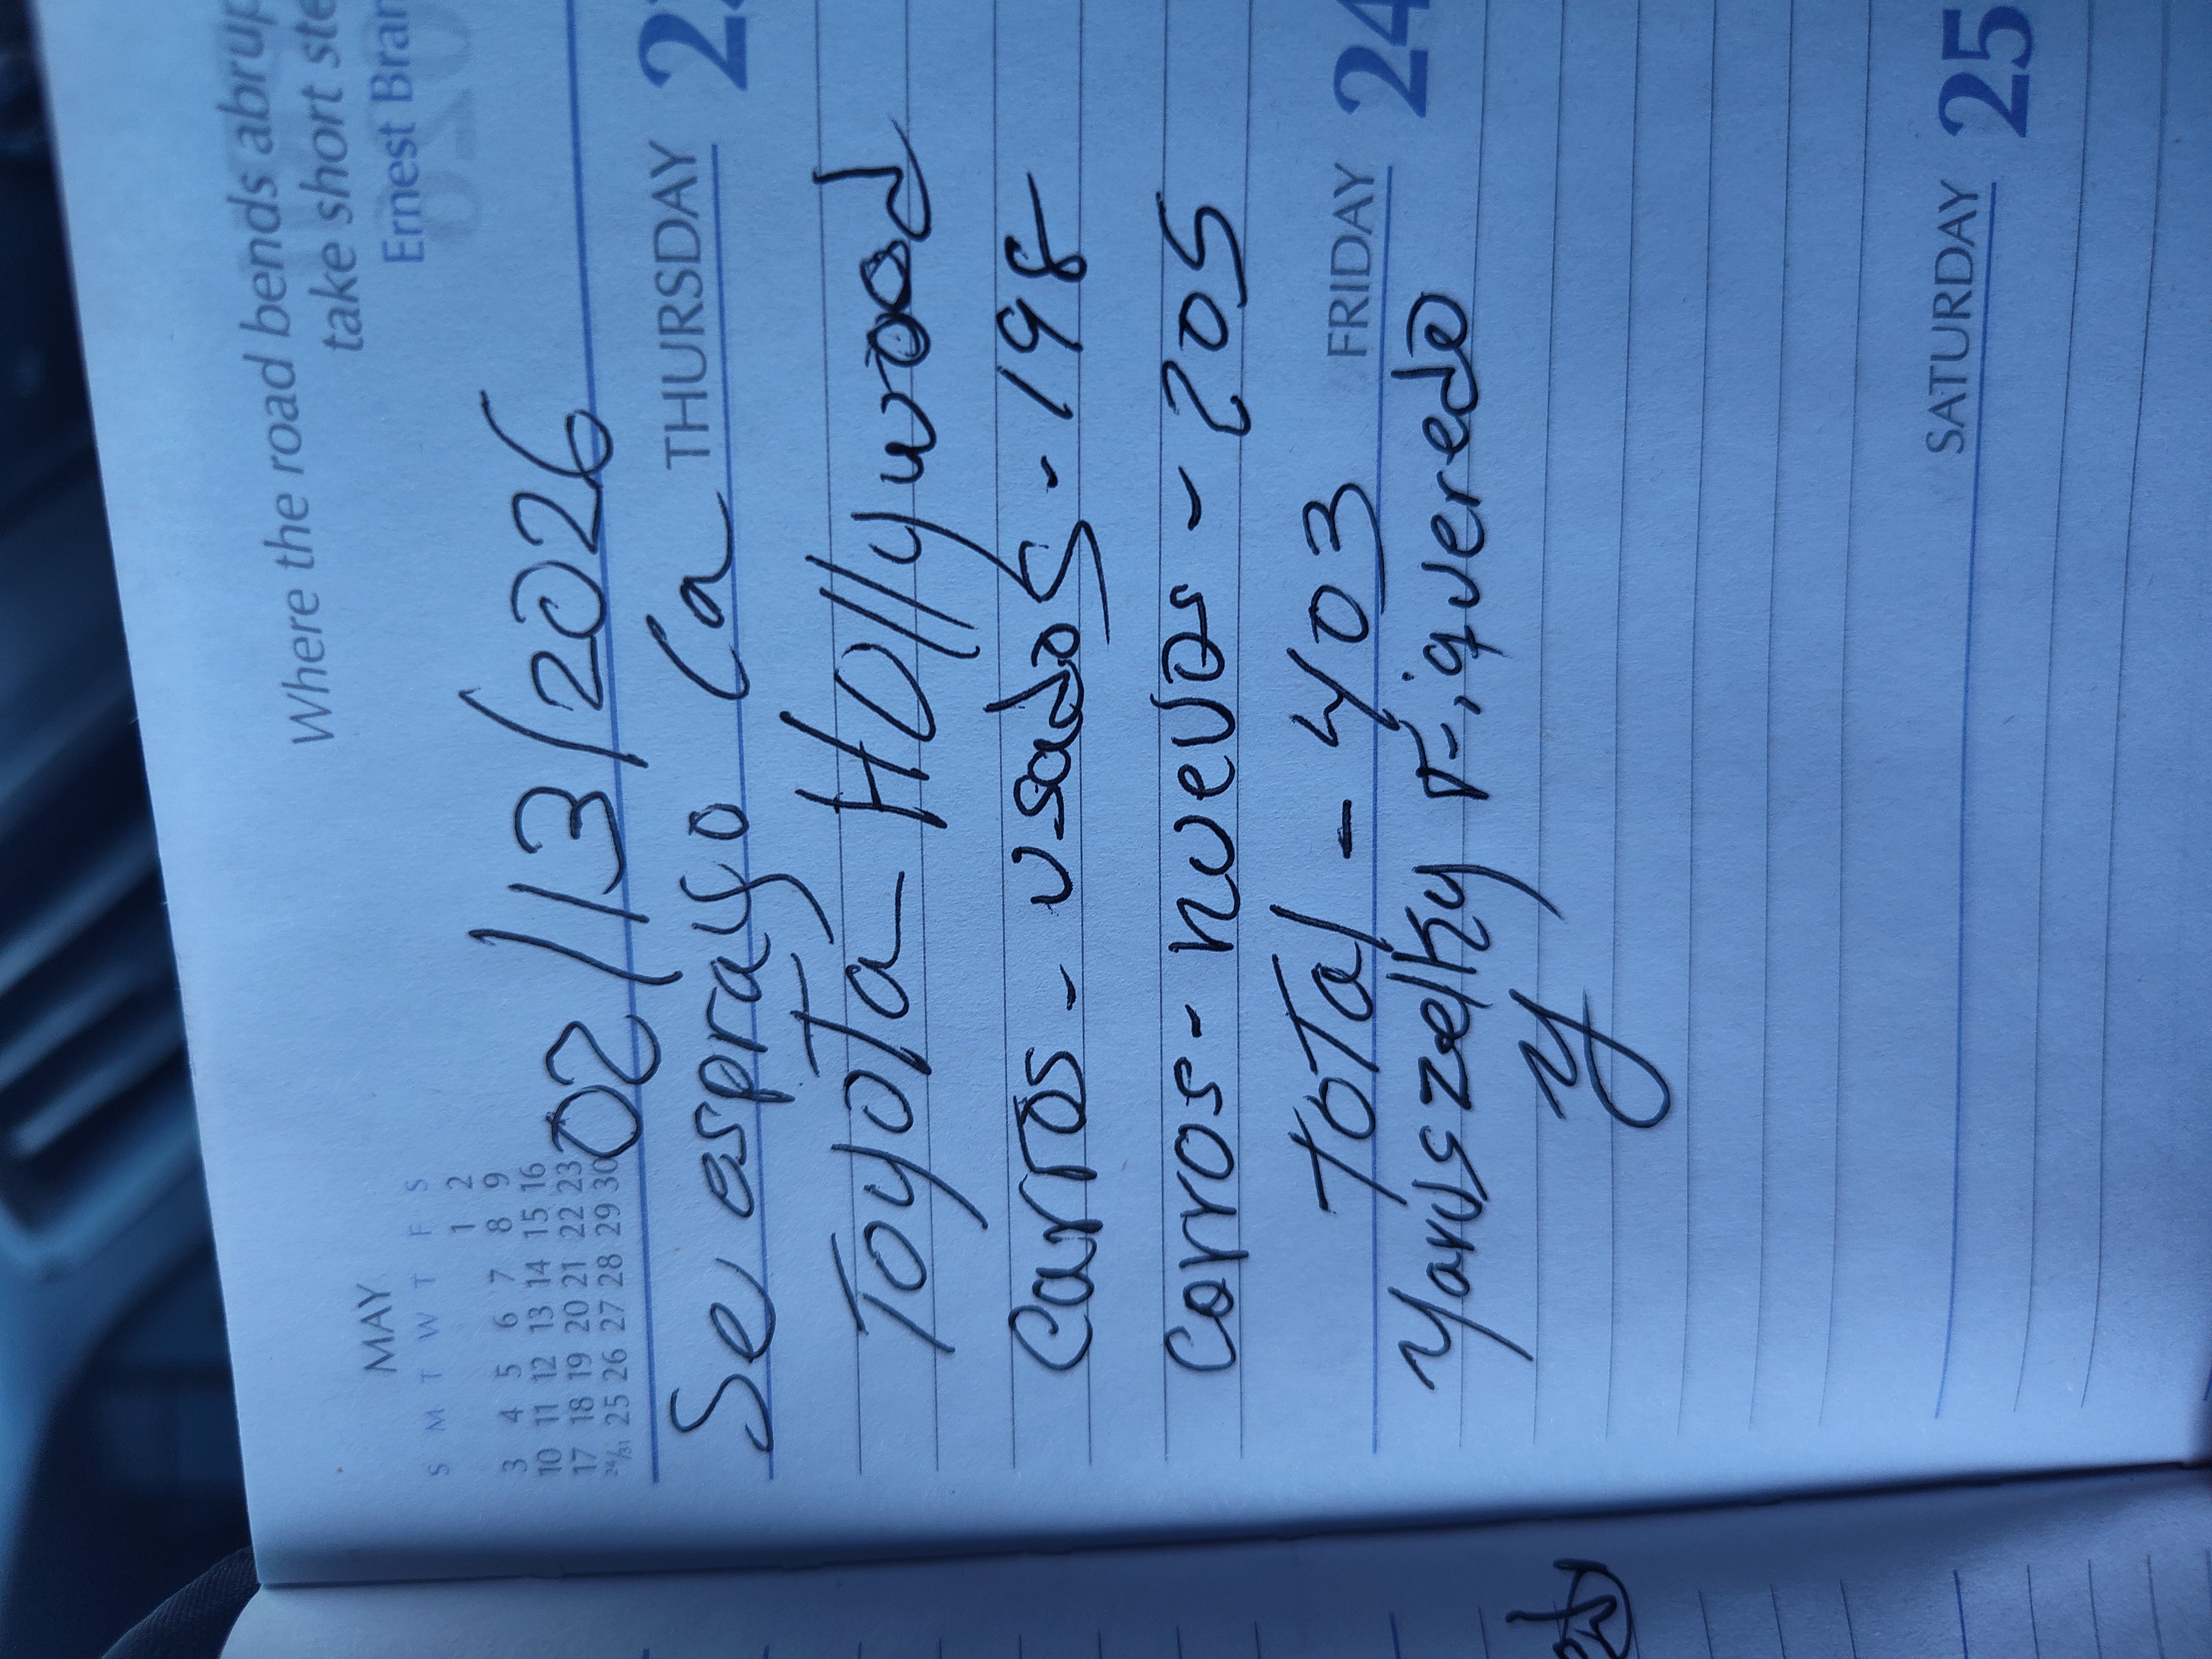 Where the road bends abrup
take short ste
Ernest Bran
MAY
S M T W T F S
1 2
3 4 5 6 7 8 9
10 11 12 13 14 15 16
17 18 19 20 21 22 23
24/31 25 26 27 28 29 30
02/13/2026
THURSDAY
Se esprayo Ca
Toyota Hollywood
Carros - usados - 198
Carros - nuevos - 205
FRIDAY 24
Total - 403
Yaruszelky Figueredo
Y
SATURDAY 25